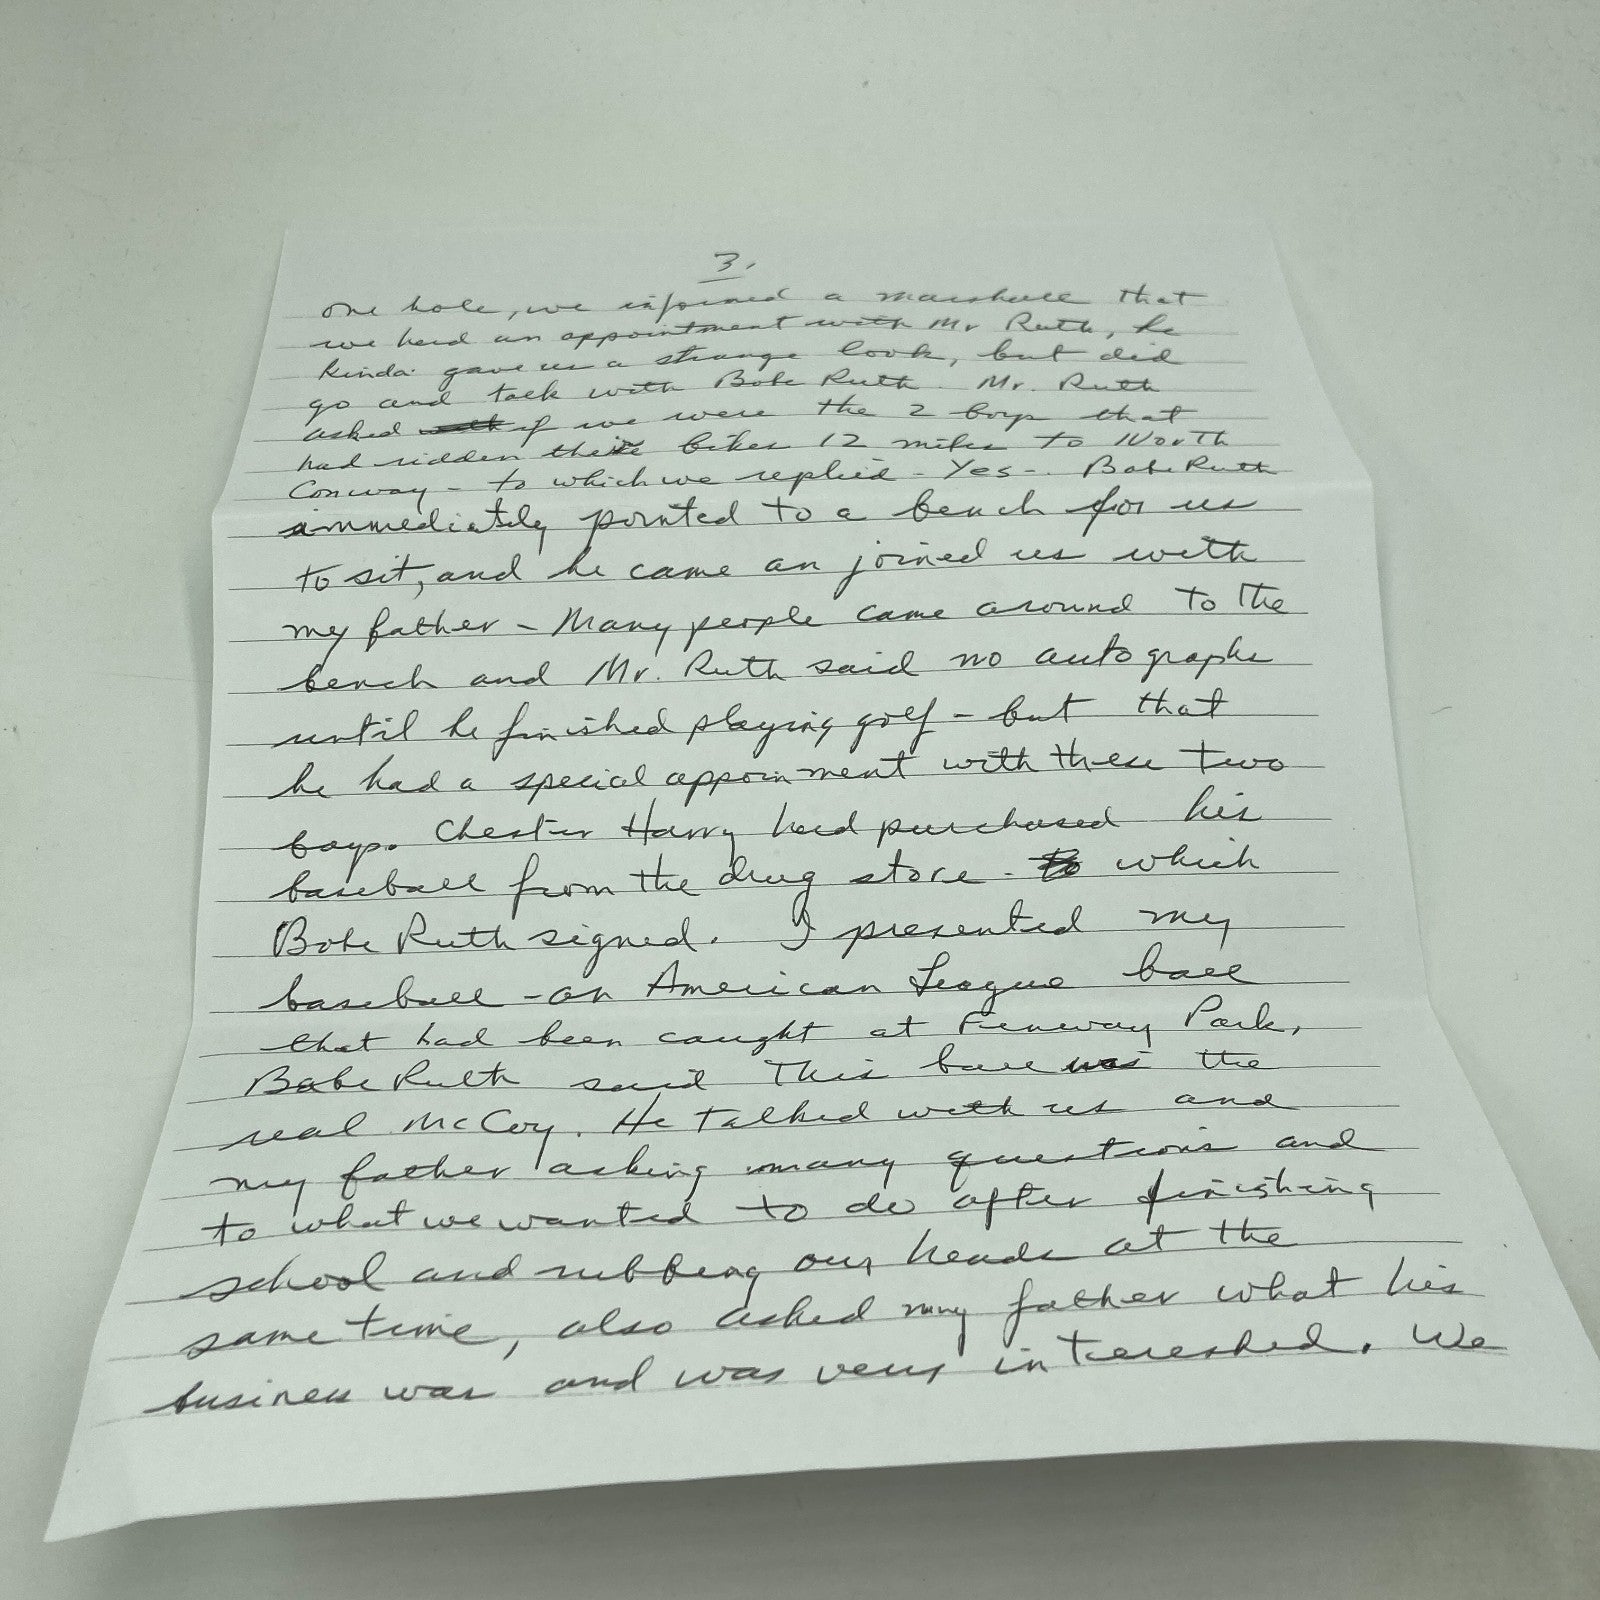 3.
one hole, we informed a marshall that
we had an appointment with Mr Ruth, he
kinda gave us a strange look, but did
go and talk with Babe Ruth. Mr. Ruth
asked if we were the 2 boys that
had ridden their bikes 12 miles to North
Conway - to which we replied - Yes -. Babe Ruth
immediately pointed to a bench for us
to sit, and he came an joined us with
my father - Many people came around to the
bench and Mr. Ruth said no autographs
until he finished playing golf - but that
he had a special appoinment with these two
boys. Chester Harry had purchased his
baseball from the drug store - which
Babe Ruth signed. I presented my
baseball - an American League ball
that had been caught at Fenway Park,
Babe Ruth said This ball was the
real McCoy. He talked with us and
my father asking many questions and
to what we wanted to do after finishing
school and rubbing our heads at the
same time, also asked my father what his
business was and was very interested. We